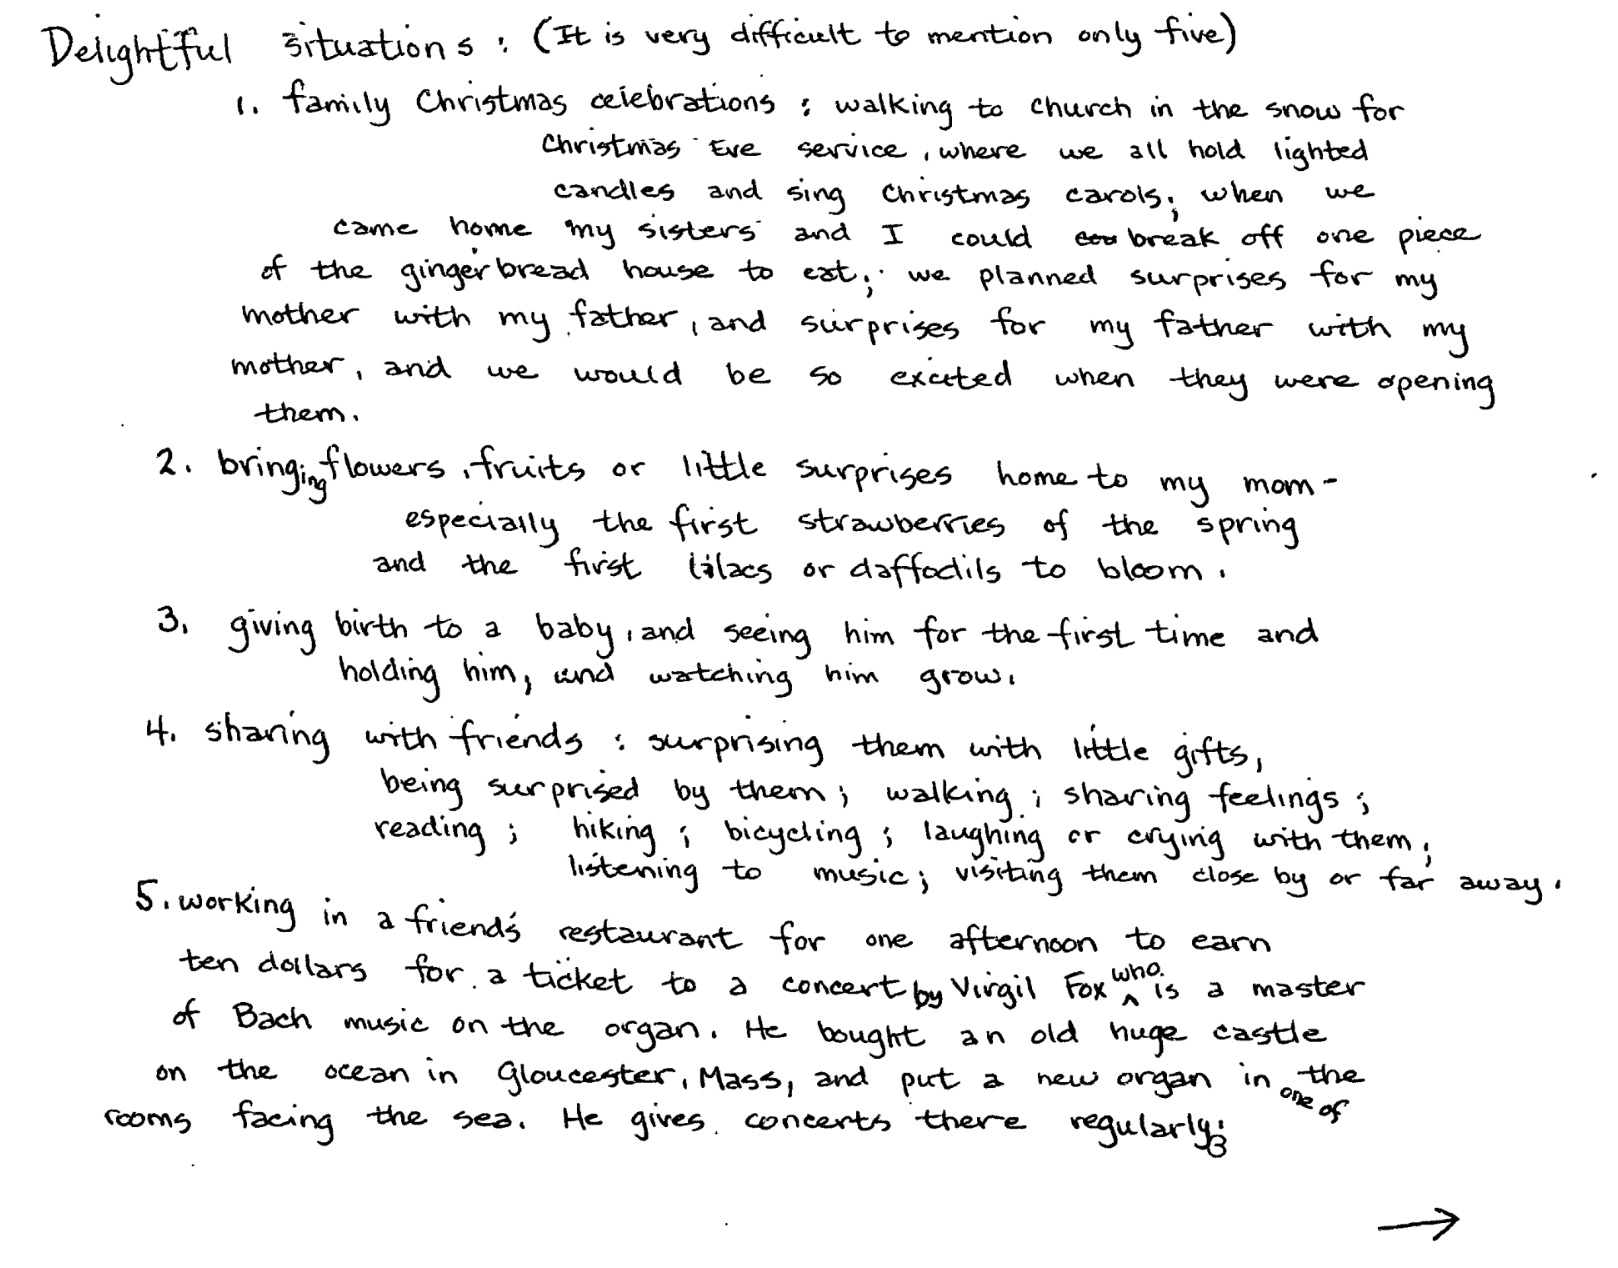 Delightful situations : (It is very difficult to mention only five)
1. family Christmas celebrations : walking to church in the snow for
Christmas Eve service, where we all hold lighted
candles and sing Christmas carols; when we
came home my sisters and I could cou break off one piece
of the gingerbread house to eat; we planned surprises for my
mother with my father, and surprises for my father with my
mother, and we would be so excited when they were opening
them.
2. bringing flowers, fruits or little surprises home to my mom -
especially the first strawberries of the spring
and the first lilacs or daffodils to bloom.
3. giving birth to a baby, and seeing him for the first time and
holding him, and watching him grow.
4. sharing with friends : surprising them with little gifts,
being surprised by them; walking; sharing feelings;
reading; hiking; bicycling; laughing or crying with them;
listening to music; visiting them close by or far away.
5. working in a friend's restaurant for one afternoon to earn
ten dollars for a ticket to a concert by Virgil Fox who is a master
of Bach music on the organ. He bought an old huge castle
on the ocean in Gloucester, Mass, and put a new organ in one of the
rooms facing the sea. He gives concerts there regularly;
→